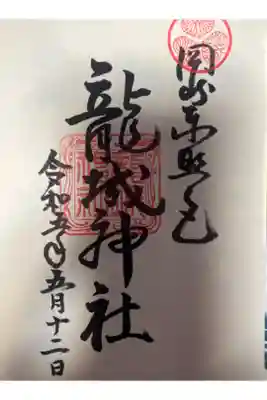 岡崎東照宮
龍城神社
令和五年五月十二日